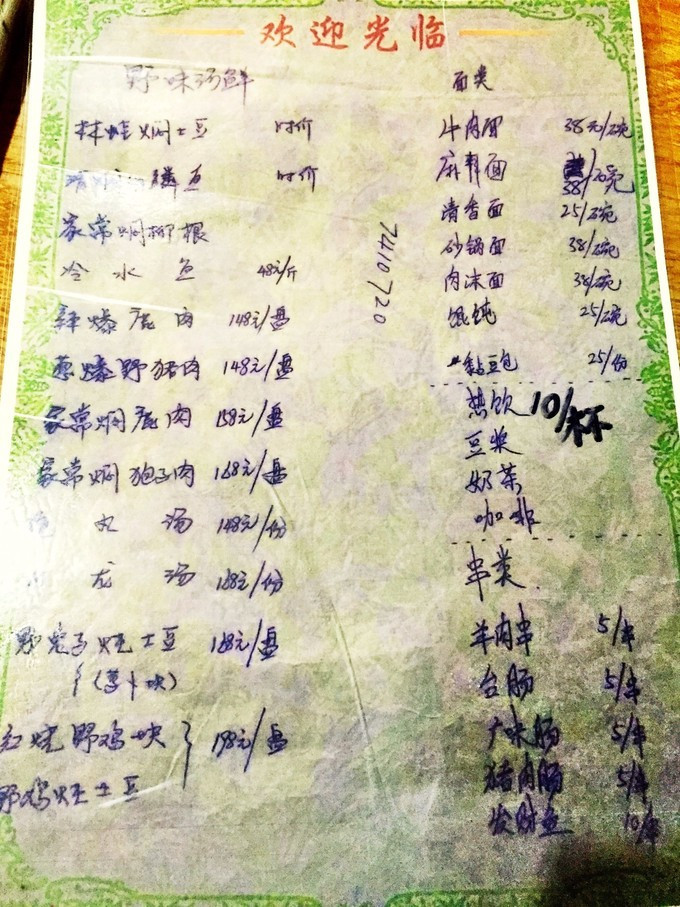 欢迎光临
野味河鲜
林蛙焖土豆 时价
鱼 时价
家常焖柳根
冷水鱼 48元/斤
辣爆鹿肉 148元/盘
葱爆野猪肉 148元/盘
家常焖鹿肉 158元/盘
家常焖狍子肉 168元/盘
丸汤 148元/份
龙汤 168元/份
野兔子炖土豆 168元/盘
(萝卜块)
红烧野鸡块 198元/盘
野鸡炖土豆
7410720
面类
牛肉面 38元/碗
麻辣面 38/碗
清香面 25/碗
砂锅面 38/碗
肉沫面 38/碗
馄饨 25/碗
粘豆包 25/份
热饮 10/杯
豆浆
奶茶
咖啡
串类
羊肉串 5/串
台肠 5/串
广味肠 5/串
猪肉肠 5/串
发财鱼 10/串